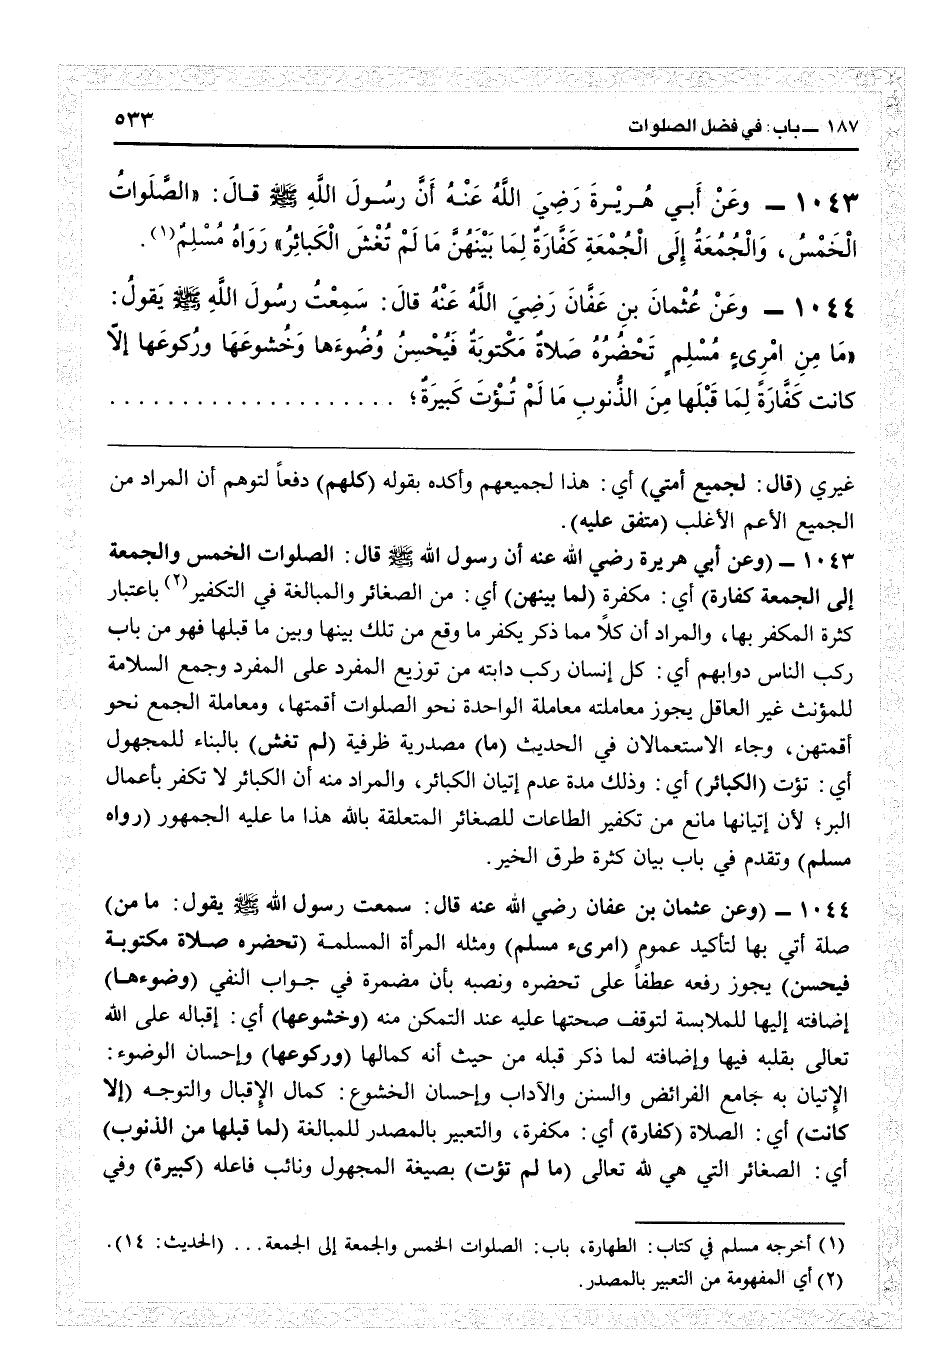 ١٨٧ ــ باب: في فضل الصلوات
٥٣٣
١٠٤٣ ــ وعَنْ أَبـي هُـرِيْـرةَ رَضِيَ اللَّهُ عَنْـهُ أَنَّ رسُـولَ اللَّهِ ﷺ قـالَ: «الصَّلَواتُ
الْخَمْسُ، وَالْجُمُعَةُ إِلَى الْجُمْعَةِ كَفَّارَةٌ لِمَا بَيْنَهُنَّ مَا لَمْ تُغْشَ الْكَبائِرُ» رَوَاهُ مُسْلِمٌ(١).
١٠٤٤ ــ وعَنْ عُثْمانَ بنِ عَفَّانَ رَضِيَ اللَّهُ عَنْهُ قالَ: سَمِعْتُ رسُولَ اللهِ ﷺ يَقولُ:
«مَا مِنِ امْرِىءٍ مُسْلِمٍ تَحْضُرُهُ صَلاةٌ مَكْتوبَةٌ فَيُحْسِنُ وُضُوءَها وَخُشوعَهَا ورُكوعَها إلاّ
كانت كَفَّارَةً لِمَا قَبْلَها مِنَ الذُّنوبِ مَا لَمْ تُـؤْتَ كَبيرَةٌ؛ . . . . . . . . . . . . . . . . . . . .
غيري (قال: لجميع أمتي) أي: هذا لجميعهم وأكده بقوله (كلهم) دفعاً لتوهم أن المراد من
الجميع الأعم الأغلب (متفق عليه).
١٠٤٣ ــ (وعن أبي هريرة رضي الله عنه أن رسول الله ﷺ قال: الصلوات الخمس والجمعة
إلى الجمعة كفارة) أي: مكفرة (لما بينهن) أي: من الصغائر والمبالغة في التكفير(٢) باعتبار
كثرة المكفر بها، والمراد أن كلاً مما ذكر يكفر ما وقع من تلك بينها وبين ما قبلها فهو من باب
ركب الناس دوابهم أي: كل إنسان ركب دابته من توزيع المفرد على المفرد وجمع السلامة
للمؤنث غير العاقل يجوز معاملته معاملة الواحدة نحو الصلوات أقمتها، ومعاملة الجمع نحو
أقمتهن، وجاء الاستعمالان في الحديث (ما) مصدرية ظرفية (لم تغش) بالبناء للمجهول
أي: تؤت (الكبائر) أي: وذلك مدة عدم إتيان الكبائر، والمراد منه أن الكبائر لا تكفر بأعمال
البر؛ لأن إتيانها مانع من تكفير الطاعات للصغائر المتعلقة بالله هذا ما عليه الجمهور (رواه
مسلم) وتقدم في باب بيان كثرة طرق الخير.
١٠٤٤ ــ (وعن عثمان بن عفان رضي الله عنه قال: سمعت رسول الله ﷺ يقول: ما من)
صلة أتي بها لتأكيد عموم (امرىء مسلم) ومثله المرأة المسلمـة (تحضره صـلاة مكتوبـة
فيحسن) يجوز رفعه عطفاً على تحضره ونصبه بأن مضمرة في جـواب النفي (وضوءهـا)
إضافته إليها للملابسة لتوقف صحتها عليه عند التمكن منه (وخشوعها) أي: إقباله على الله
تعالى بقلبه فيها وإضافته لما ذكر قبله من حيث أنه كمالها (وركوعها) وإحسان الوضوء:
الإتيان به جامع الفرائض والسنن والآداب وإحسان الخشوع: كمال الإقبال والتوجـه (إلا
كانت) أي: الصلاة (كفارة) أي: مكفرة، والتعبير بالمصدر للمبالغة (لما قبلها من الذنوب)
أي: الصغائر التي هي لله تعالى (ما لم تؤت) بصيغة المجهول ونائب فاعله (كبيرة) وفي
(١) أخرجه مسلم في كتاب: الطهارة، باب: الصلوات الخمس والجمعة إلى الجمعة... (الحديث: ١٤).
(٢) أي المفهومة من التعبير بالمصدر.